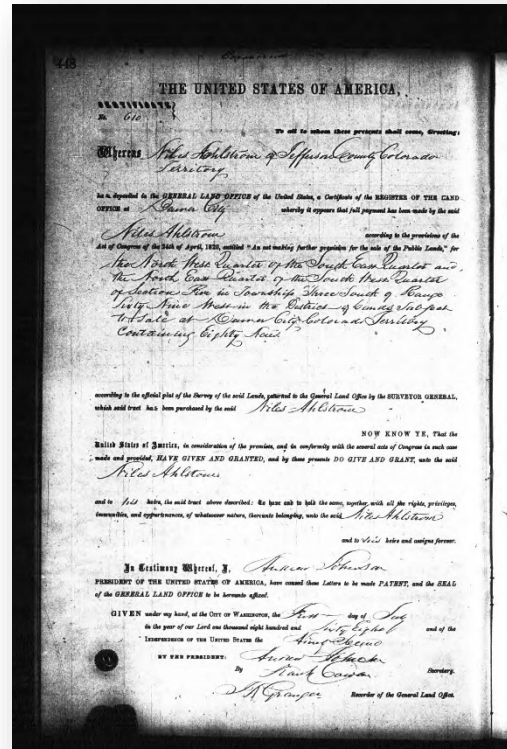 443
THE UNITED STATES OF AMERICA,
No 610
To all to whom these presents shall come, Greeting:
Whereas Niles Ahlstrom of Jefferson County Colorado
Territory
has deposited in the GENERAL LAND OFFICE of the United States, a Certificate of the REGISTER OF THE LAND
OFFICE at Denver City whereby it appears that full payment has been made by the said
Niles Ahlstrom according to the provisions of the
Act of Congress of the 24th of April, 1820, entitled "An act making further provision for the sale of the Public Lands," for
the North West Quarter of the South East Quarter and
the North East Quarter of the South West Quarter
of Section Five in Township Three South of Range
Sixty Nine West in the District of Lands Subject
to Sale at Denver City Colorado Territory
Containing Eighty
according to the official plat of the Survey of the said Lands, returned to the General Land Office by the SURVEYOR GENERAL,
which said tract has been purchased by the said Niles Ahlstrom
NOW KNOW YE, That the
United States of America, in consideration of the premises, and in conformity with the several acts of Congress in such case
made and provided, HAVE GIVEN AND GRANTED, and by these presents DO GIVE AND GRANT, unto the said
Niles Ahlstrom
and to his heirs, the said tract above described: To have and to hold the same, together with all the rights, privileges,
immunities, and appurtenances, of whatsoever nature, thereunto belonging, unto the said Niles Ahlstrom
and to his heirs and assigns forever.
In Testimony Whereof, I, Andrew Johnson
PRESIDENT OF THE UNITED STATES OF AMERICA, have caused these Letters to be made PATENT, and the SEAL
of the GENERAL LAND OFFICE to be hereunto affixed.
GIVEN under my hand, at the CITY OF WASHINGTON, the First day of July
in the year of our Lord one thousand eight hundred and Sixty Eight and of the
INDEPENDENCE OF THE UNITED STATES the Ninety Second
BY THE PRESIDENT: Andrew Johnson
By Frank Cowan Secretary.
Granger Recorder of the General Land Office.